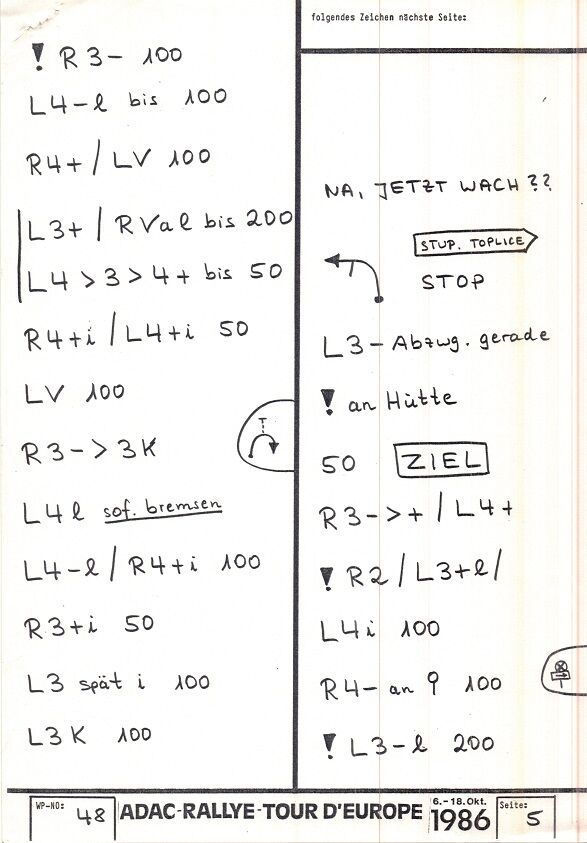 ! R3- 100
L4-l bis 100
R4+ / LV 100
L3+ / RVal bis 200
L4 > 3 > 4+ bis 50
R4+i / L4+i 50
LV 100
T
R3-> 3K
L4l sof. bremsen
L4-l / R4+i 100
R3+i 50
L3 spät i 100
L3K 100
folgendes Zeichen nächste Seite:
NA, JETZT WACH??
STUP. TOPLICE
STOP
L3- Abzwg. gerade
! an Hütte
50 ZIEL
R3->+ / L4+
! R2 / L3+l /
L4i 100
R4- an 100
! L3-l 200
WP-NO: 48
ADAC-RALLYE-TOUR D'EUROPE
6.-18.Okt.
1986
Seite: 5